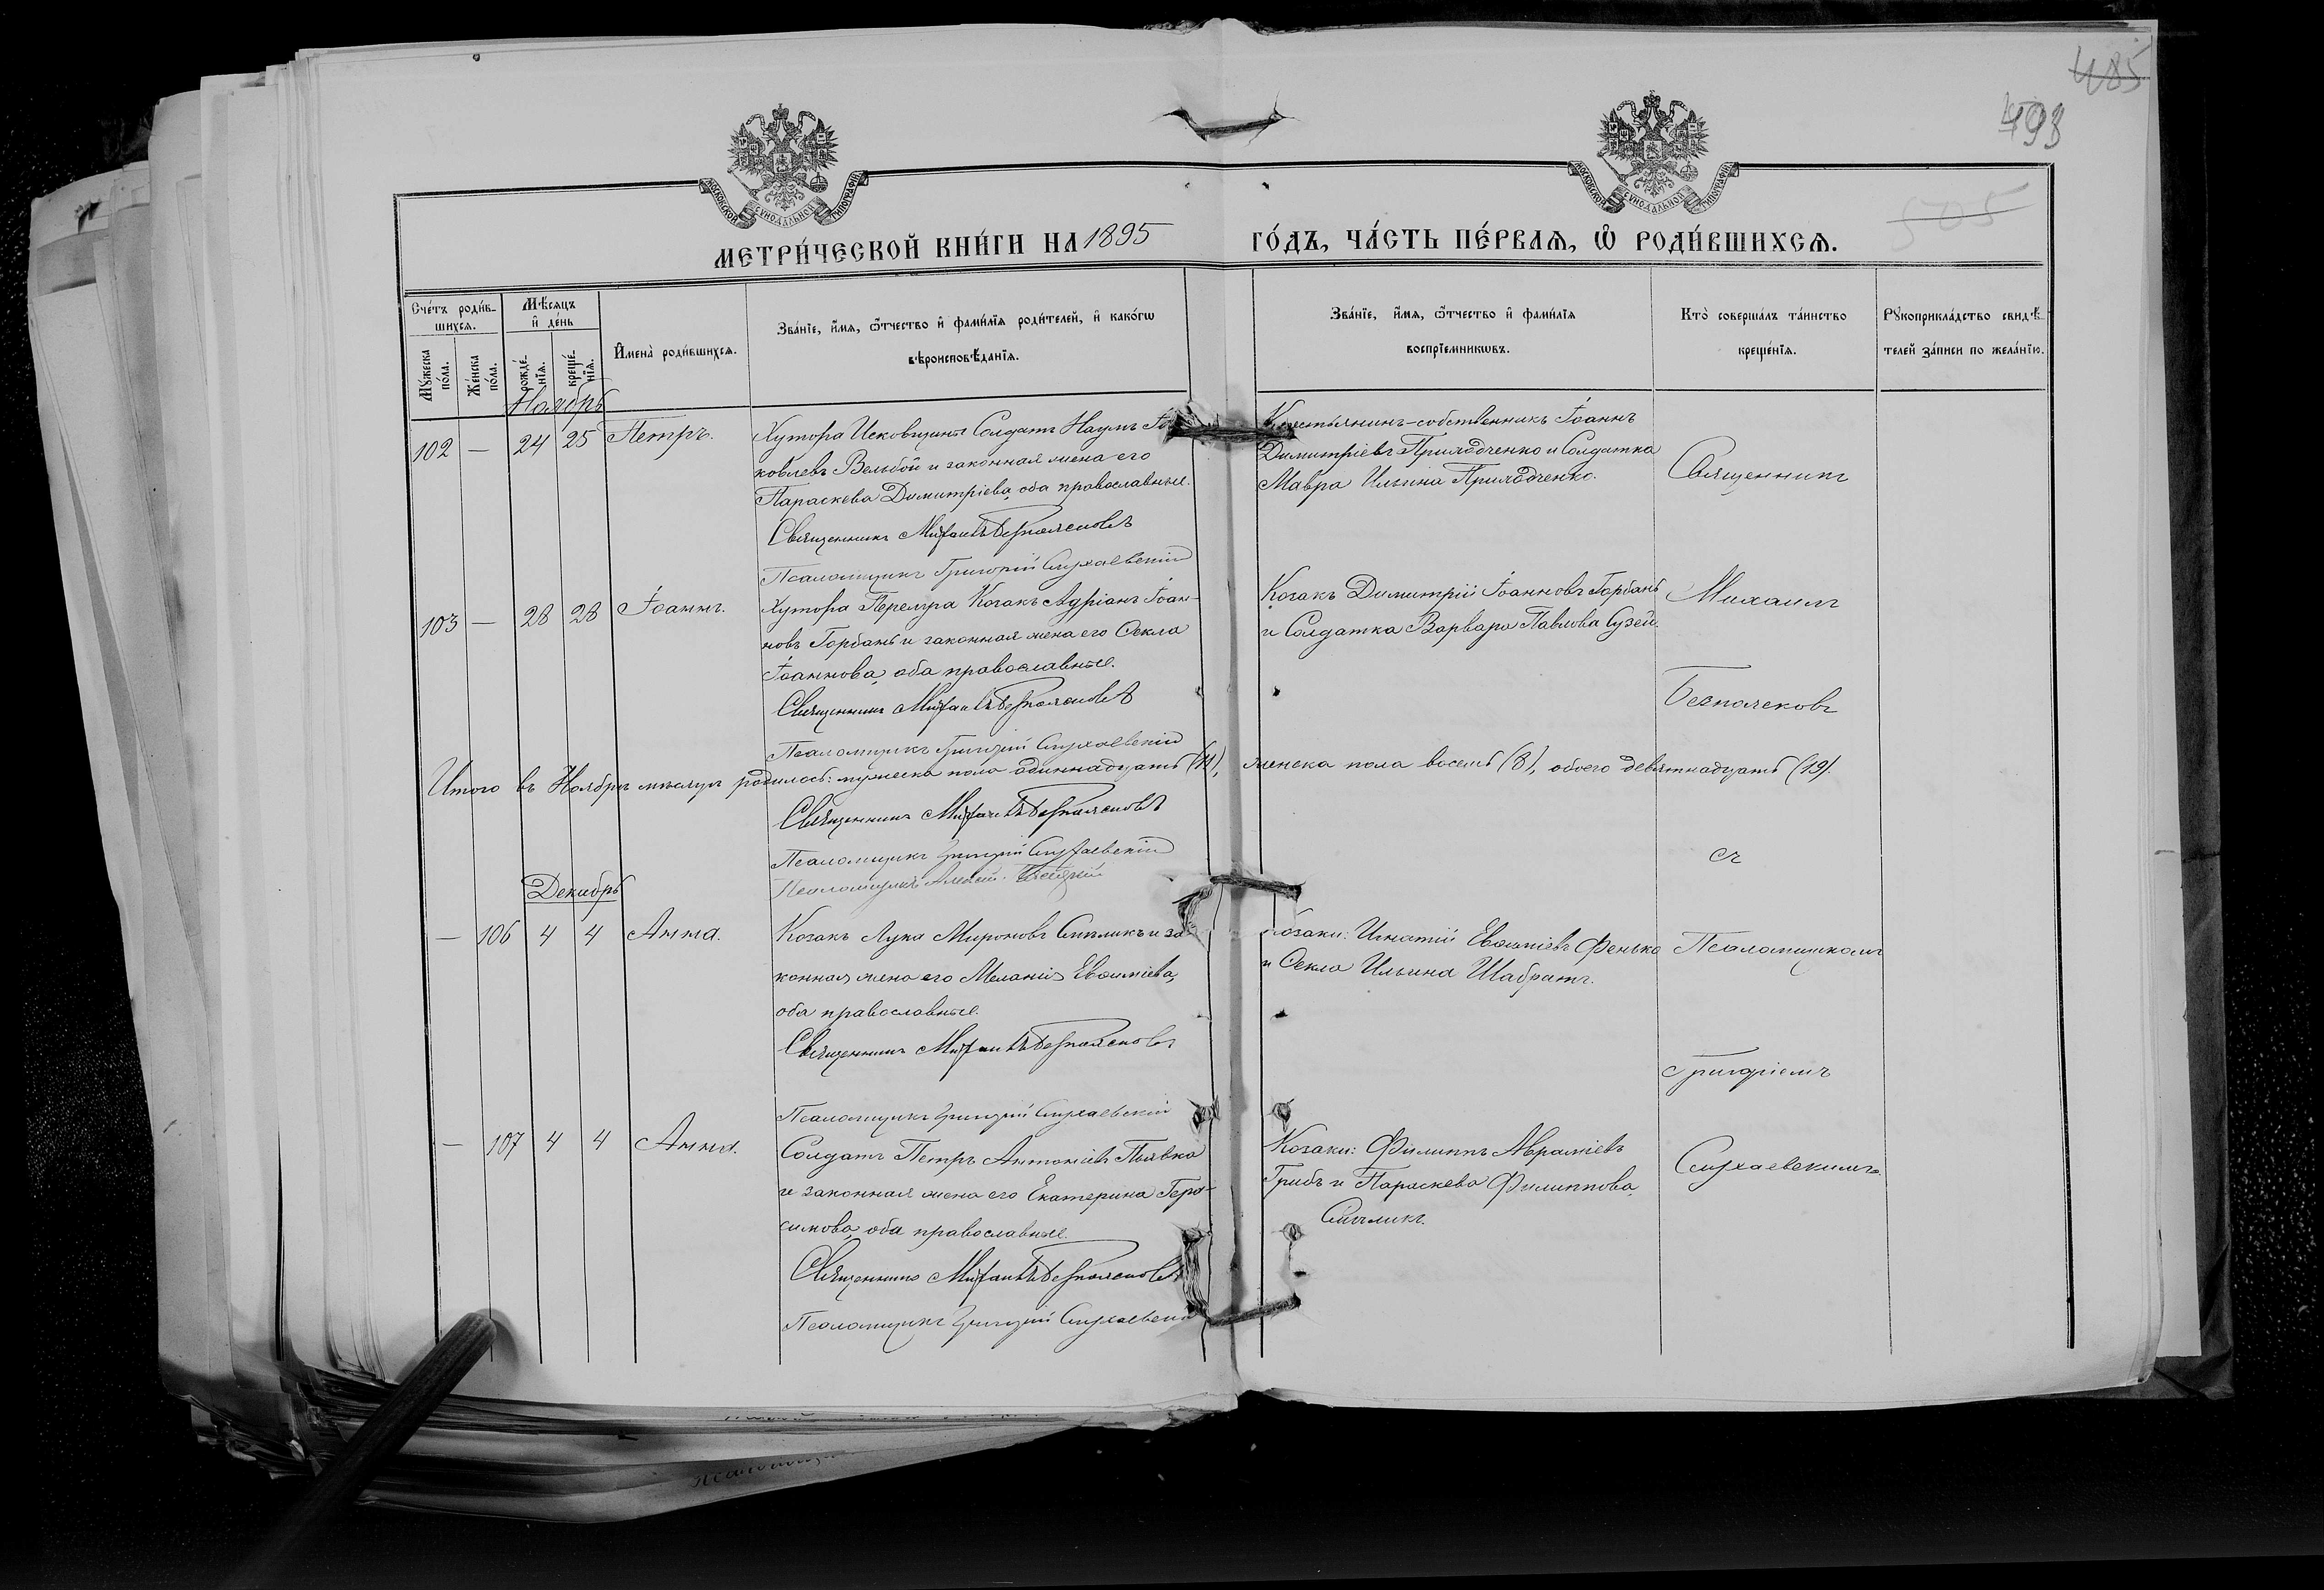 485
493
505
МОСКОВСКОЙ СУНОДАЛЬНОЙ ТИПОГРАФІИ
МОСКОВСКОЙ СУНОДАЛЬНОЙ ТИПОГРАФІИ
МЕТРИ́ЧЕСКОЙ КНИ́ГИ НА 1895 ГО́ДЪ, ЧА́СТЬ ПЕ́РВАѦ, Ѡ РОДИ́ВШИХСѦ.
Сче́тъ роди́в-
шихсѧ.
Мꙋ́жеска по́ла.
Же́нска по́ла.
Мѣ́сѧцъ
и҆ де́нь
рожде́-
нїѧ.
креще́-
нїѧ.
И҆мена̀ роди́вшихсѧ.
Зва́нїе, и҆́мѧ, ѻ҆́тчество и҆ фами́лїѧ роди́телей, и҆ како́гѡ
вѣроисповѣ́данїѧ.
Зва́нїе, и҆́мѧ, ѻ҆́тчество и҆ фами́лїѧ
воспрїе́мникѡвъ.
Кто̀ соверша́лъ та́инство
креще́нїѧ.
Рꙋкоприкла́дство свидѣ́-
телей за́писи по жела́нїю.
Ноябрь
102 — 24 25 Петръ.
Хутора Исковщины Солдатъ Наумъ
ковлевъ Вельбой и законная жена его
Параскева Димитріева, оба православные.
Священникъ Михаилъ Безпоясковъ
Псаломщикъ Григорій Слухаевскій
Крестьянинъ-собственникъ Іоаннъ
Димитріевъ Приходченко и Солдатка
Мавра Ильина Приходченко.
Священникъ
103 — 28 28 Іоаннъ.
Хутора Перекра Козакъ Адріанъ Іоан-
новъ Горбань и законная жена его Ѳекла
Іоаннова, оба православные.
Священникъ Михаилъ Безпоясковъ
Псаломщикъ Григорій Слухаевскій
Козакъ Димитрій Іоанновъ Горбань
и Солдатка Варвара Павлова Сузей.
Михаилъ
Безпоясковъ
Итого въ Ноябрѣ мѣсяцѣ родилось: мужеска пола одиннадцать (11), женска пола восемь (8), обоего девятнадцать (19).
Священникъ Михаилъ Безпоясковъ
Псаломщикъ Григорій Слухаевскій
Псаломщикъ
съ
Декабрь
— 106 4 4 Анна.
Козакъ Лука Мироновъ и за-
конная жена его Меланія Евѳиміева,
оба православные.
Священникъ Михаилъ Безпоясковъ
Псаломщикъ Григорій Слухаевскій
Козаки: Игнатій Евѳиміевъ Фенько
и Ѳекла Ильина Шабратъ.
Псаломщикомъ
Григоріемъ
— 107 4 4 Анна.
Солдатъ Петръ Антоніевъ Пьявка
и законная жена его Екатерина Гера-
симова, оба православные.
Священникъ Михаилъ Безпоясковъ
Псаломщикъ Григорій Слухаевскій
Козаки: Филиппъ Авраміевъ
Грибъ и Параскева Филиппова
Слухаевскимъ.